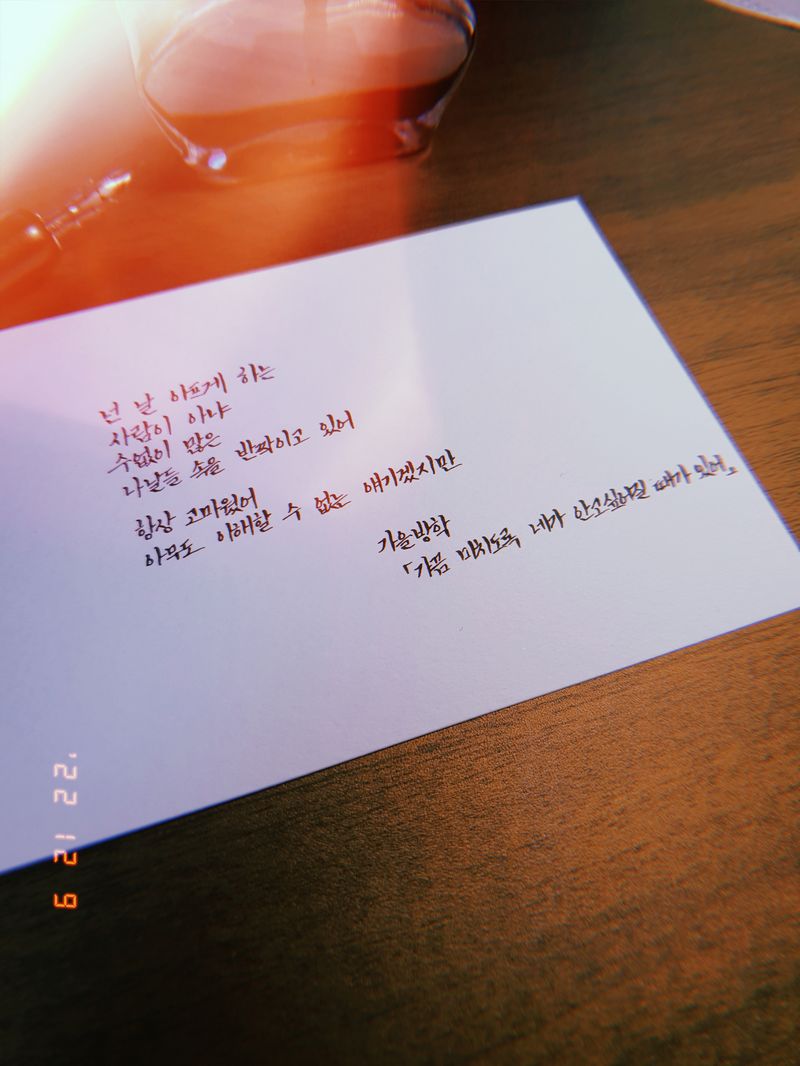 넌 날 아프게 하는
사람이 아냐
수없이 많은
나날들 속을 반짝이고 있어
항상 고마웠어
아무도 이해할 수 없는 얘기겠지만
가을방학
「가끔 미치도록 네가 안고싶어질 때가 있어」
'22 12 9